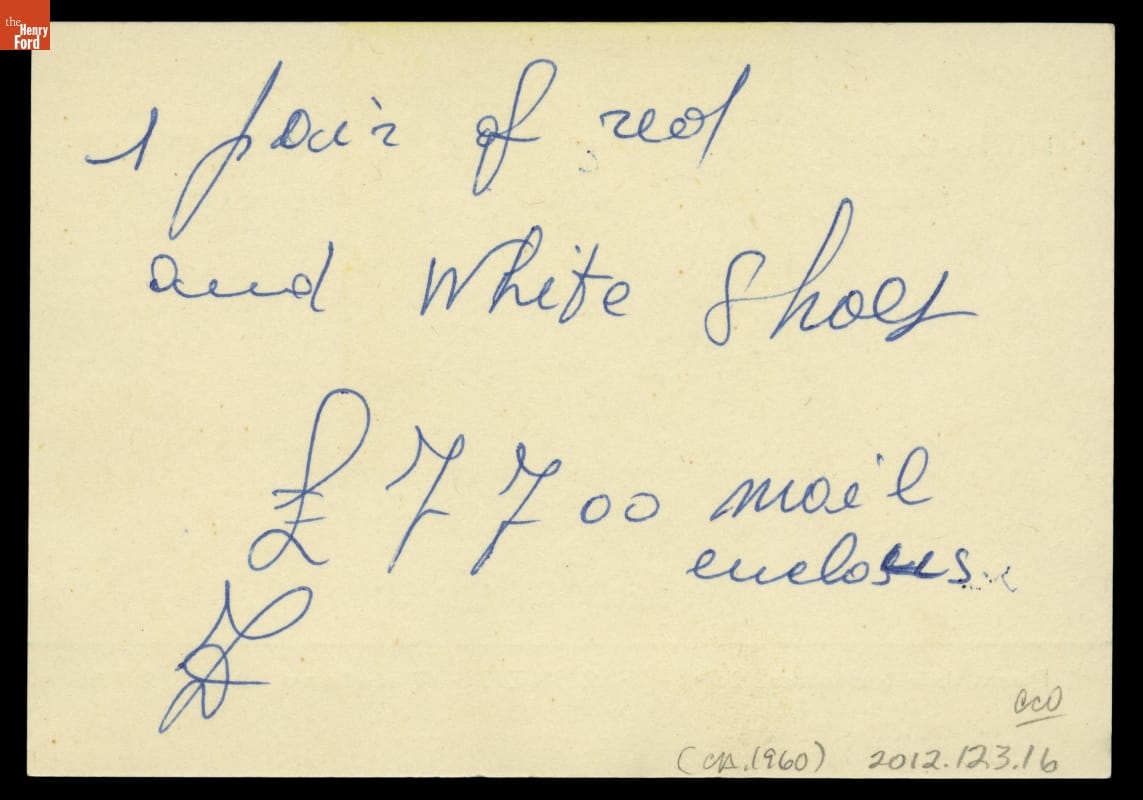 the
Henry
Ford
1 pair of red
and White Shoes
£ 7700 mail
(CA. 1960) 2012.123.16